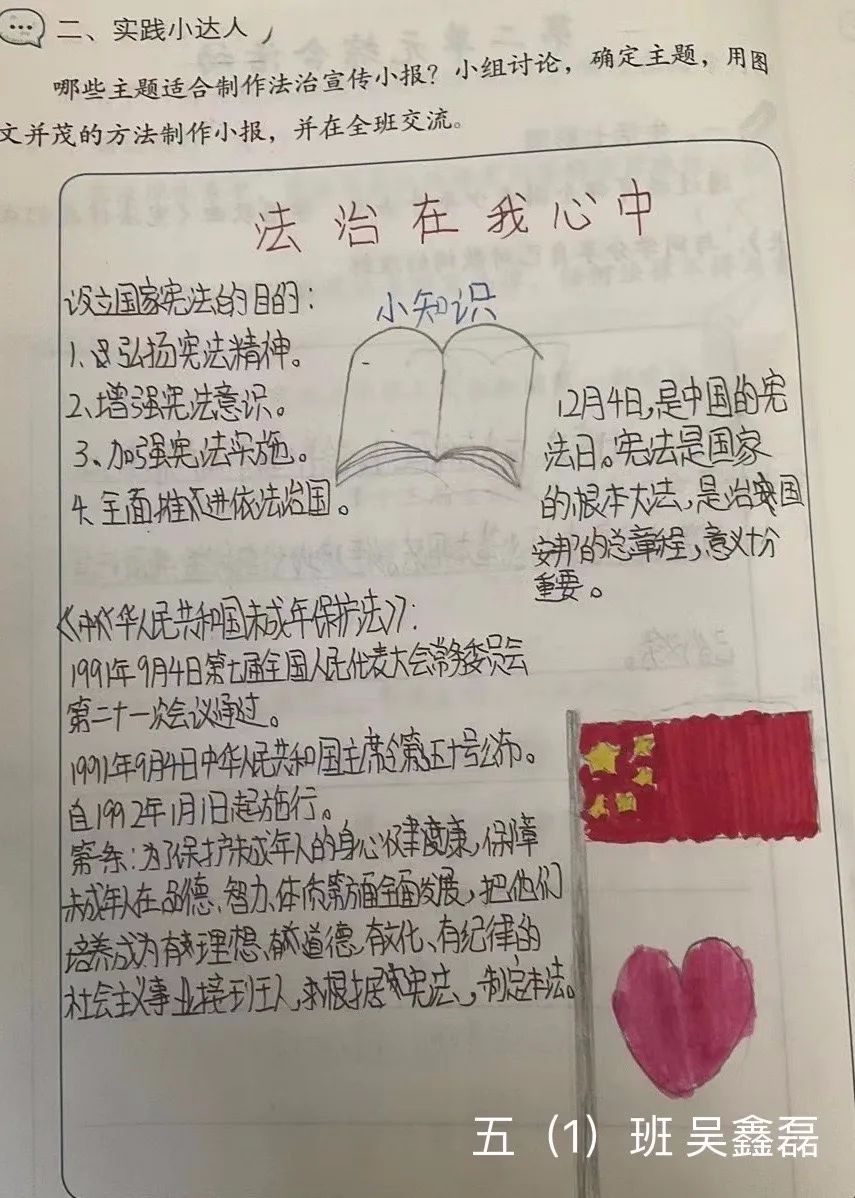 二、实践小达人
哪些主题适合制作法治宣传小报？小组讨论，确定主题，用图
文并茂的方法制作小报，并在全班交流。
法治在我心中
设立国家宪法的目的：
1、弘扬宪法精神。
2、增强宪法意识。
3、加强宪法实施。
4、全面推进依法治国。
小知识
12月4日，是中国的宪
法日。宪法是国家
的根本大法，是治国
安邦的总章程，意义十分
重要。
《中华人民共和国未成年保护法》：
1991年9月4日第七届全国人民代表大会常务委员会
第二十一次会议通过。
1991年9月4日中华人民共和国主席令第五十号公布。
自1992年1月1日起施行。
第一条：为了保护未成年人的身心健康，保障
未成年人在品德、智力、体质等方面全面发展，把他们
培养成为有理想、有道德、有文化、有纪律的
社会主义事业接班人，根据宪法，制定本法。
五（1）班 吴鑫磊